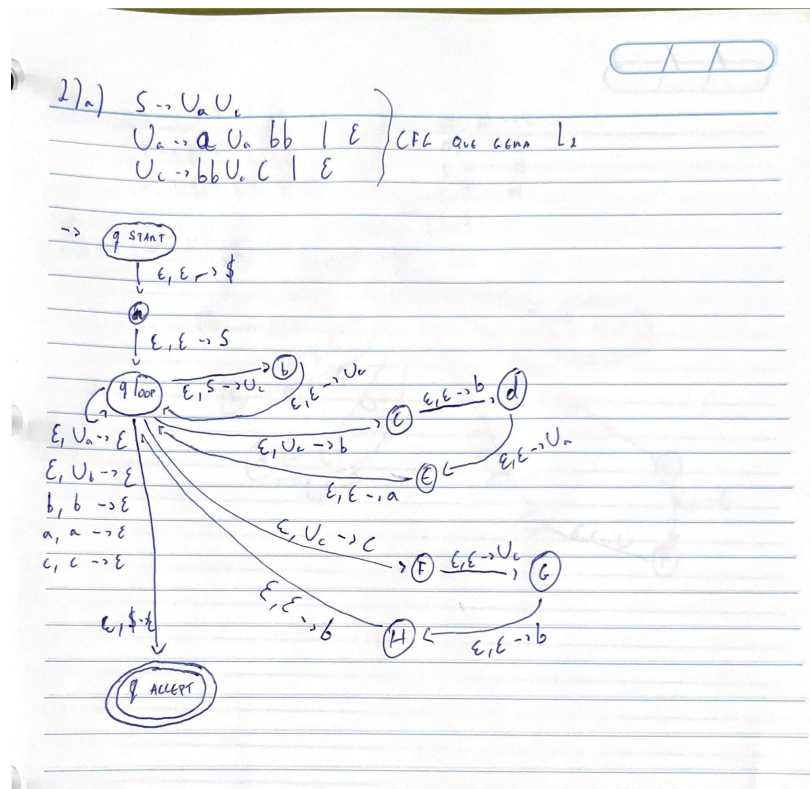 2)a) S -> Ua Uc
Ua -> a Ua bb | ε
Uc -> bb Uc c | ε
CFG QUE GERA L2
->
q START
ε, ε -> $
a
ε, ε -> S
q loop
ε, S -> Uc
b
ε, ε -> Ua
ε, Ua -> b
C
ε, ε -> b
d
ε, ε -> Ua
E
ε, ε -> a
ε, Ua -> ε
ε, Ub -> ε
b, b -> ε
a, a -> ε
c, c -> ε
ε, Uc -> c
F
ε, ε -> Uc
G
ε, ε -> b
H
ε, ε -> b
ε, $ -> ε
q ACCEPT